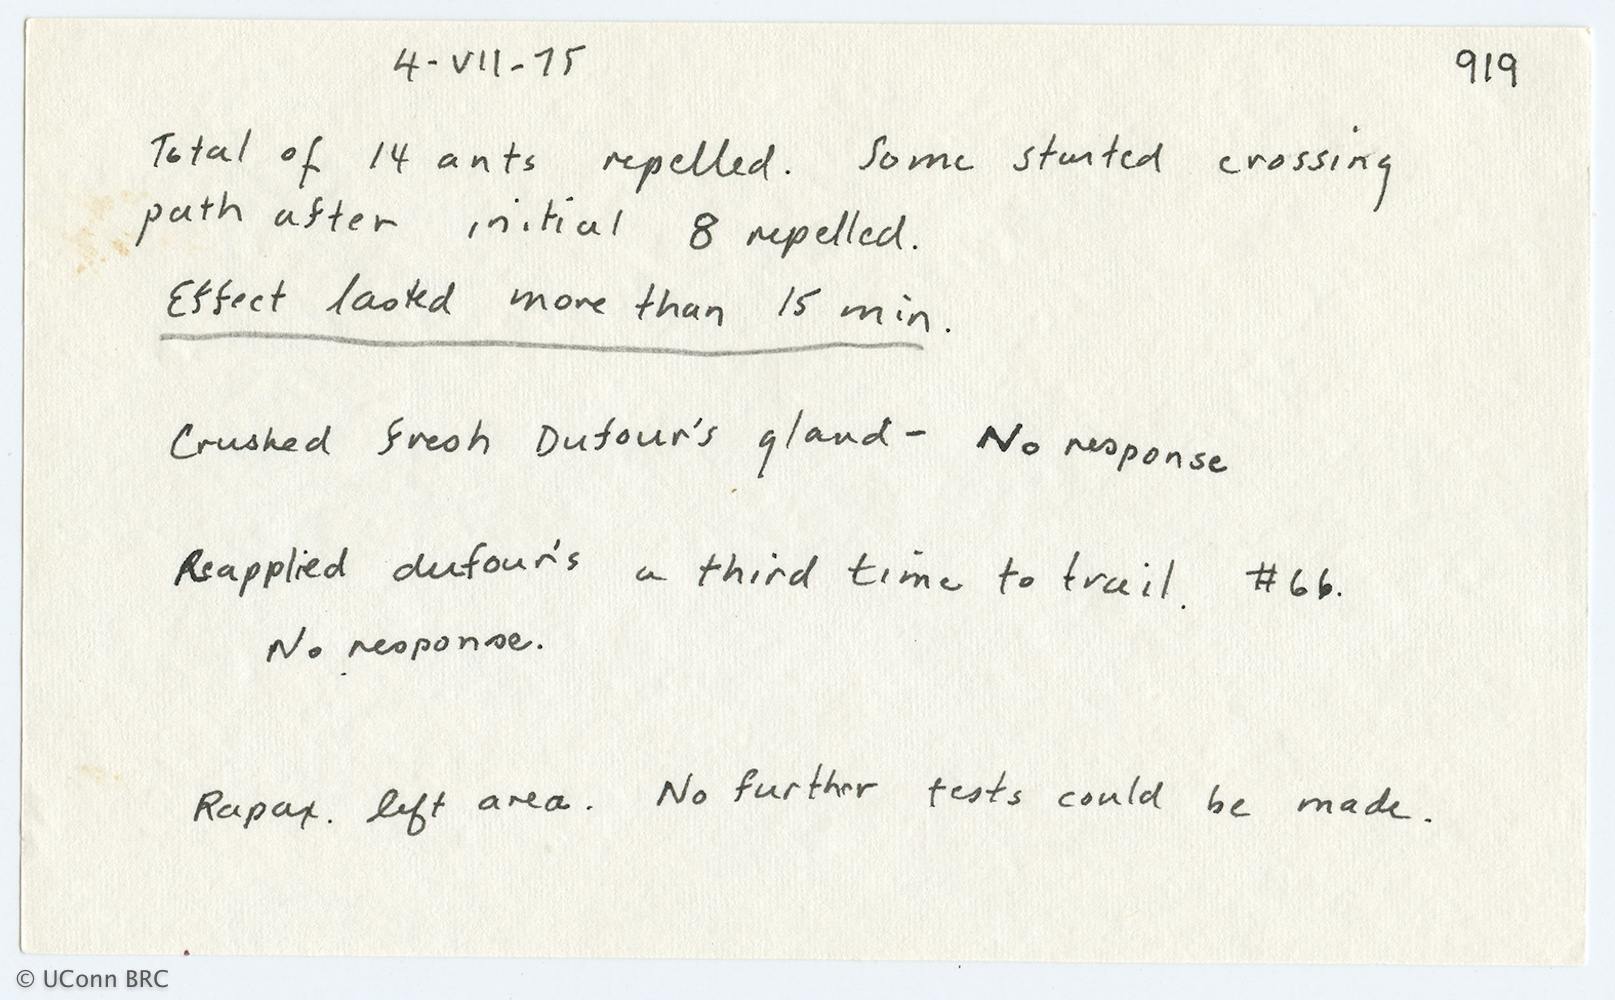 4-VII-75
919
Total of 14 ants repelled. Some started crossing
path after initial 8 repelled.
Effect lasted more than 15 min.
Crushed fresh Dufour's gland - No response
Reapplied dufour's a third time to trail. #66.
No response.
Rapax. left area. No further tests could be made.
© UConn BRC